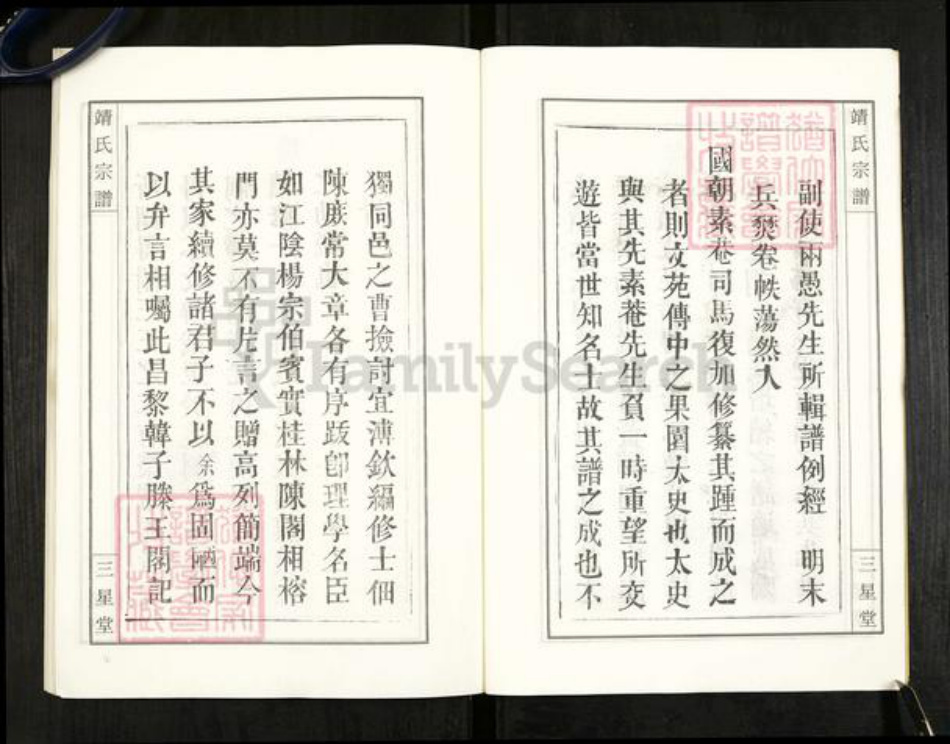 靖氏宗譜
副使雨愚先生所輯譜例經 明末
兵燹卷帙蕩然入
國朝素菴司馬復加修纂其踵而成之
者則文苑傳中之果園太史也太史
與其先素菴先生負一時重望所交
遊皆當世知名士故其譜之成也不
三星堂
獨同邑之曹撿討宜溥欽編修士佃
陳廐常大章各有序跋卽理學名臣
如江陰楊宗伯賓實桂林陳閣相榕
門亦莫不有片言之贈高列簡端今
其家續修諸君子不以余爲固陋而
以弁言相囑此昌黎韓子滕王閣記
靖氏宗譜
三星堂
FamilySearch